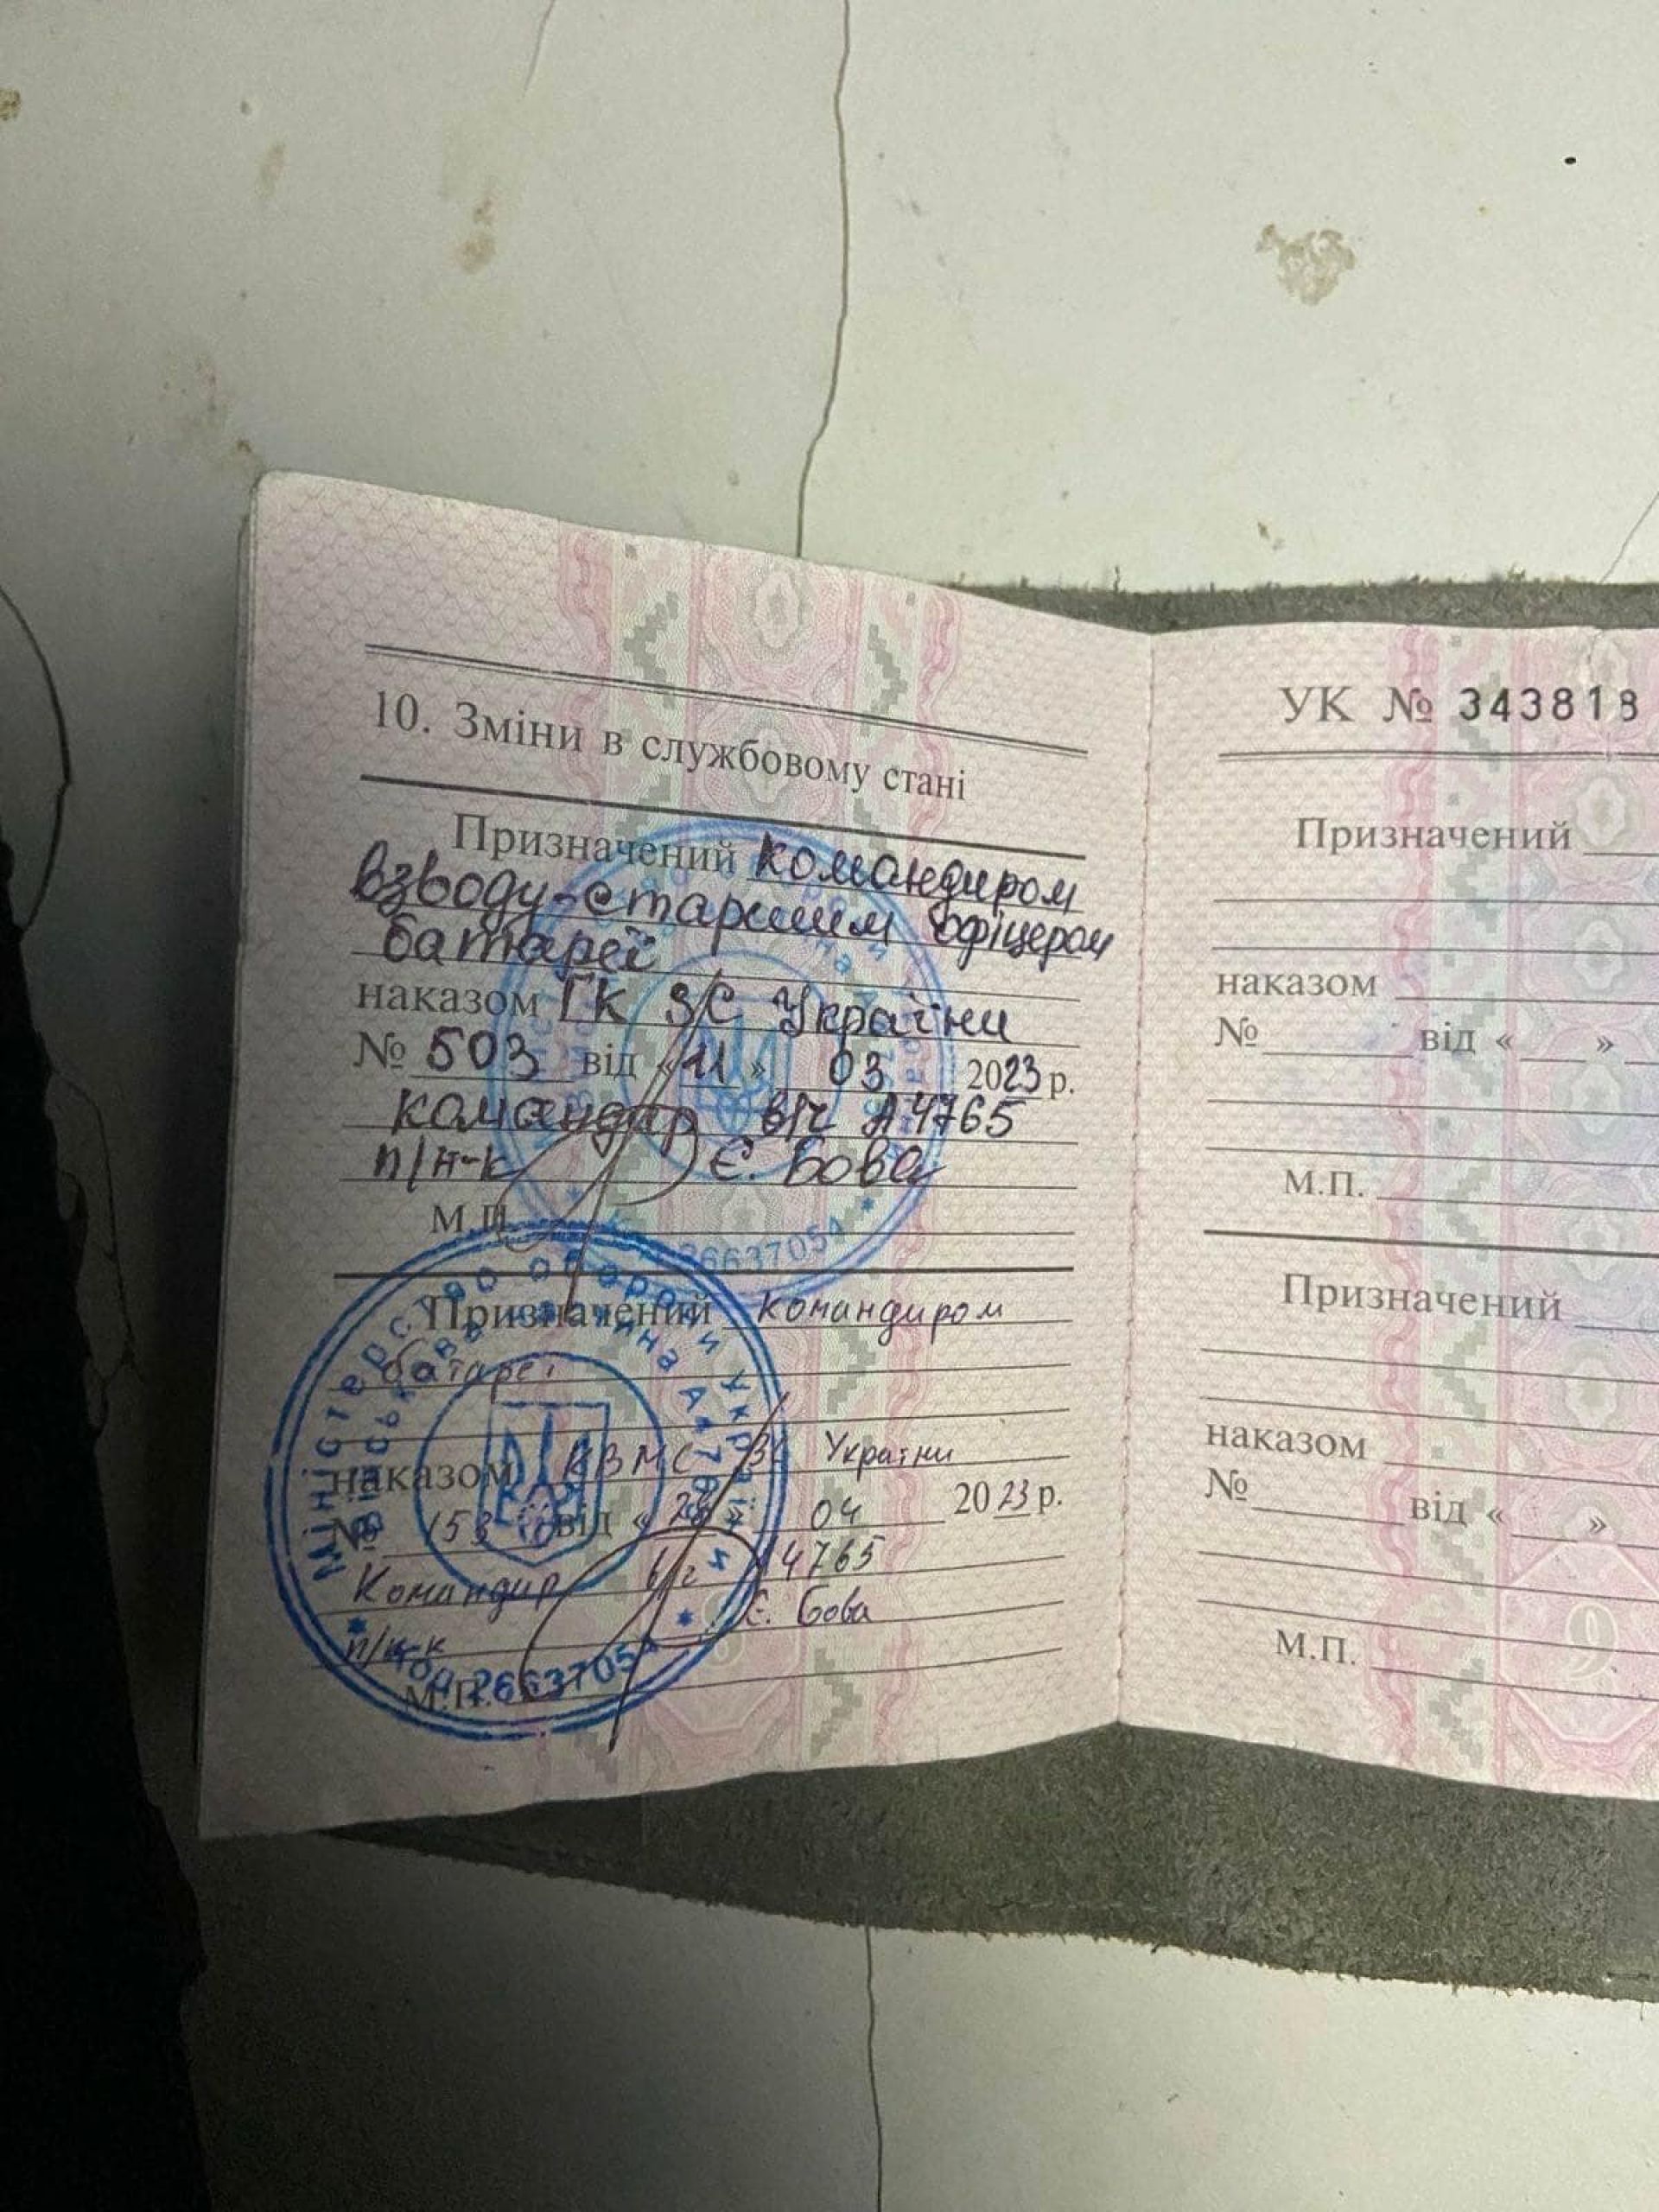 10. Зміни в службовому стані
Призначений командиром
взводу-старшим офіцером
батареї
наказом ГК ЗС України
№ 503 від «11» 03 2023 р.
командир в/ч А4765
п/п-к Є. Бова
М.П.
26637054
Призначений командиром
батареї
наказом КВМС ЗС України
№ 153 від « 28 » 04 2023 р.
Командир в/ч А4765
п/п-к Є. Бова
М.П.
Міністерство оборони України
Військова частина А4765
код 26637054
8
УК № 343818
Призначений
наказом
№ від « »
М.П.
Призначений
наказом
№ від « »
М.П.
9